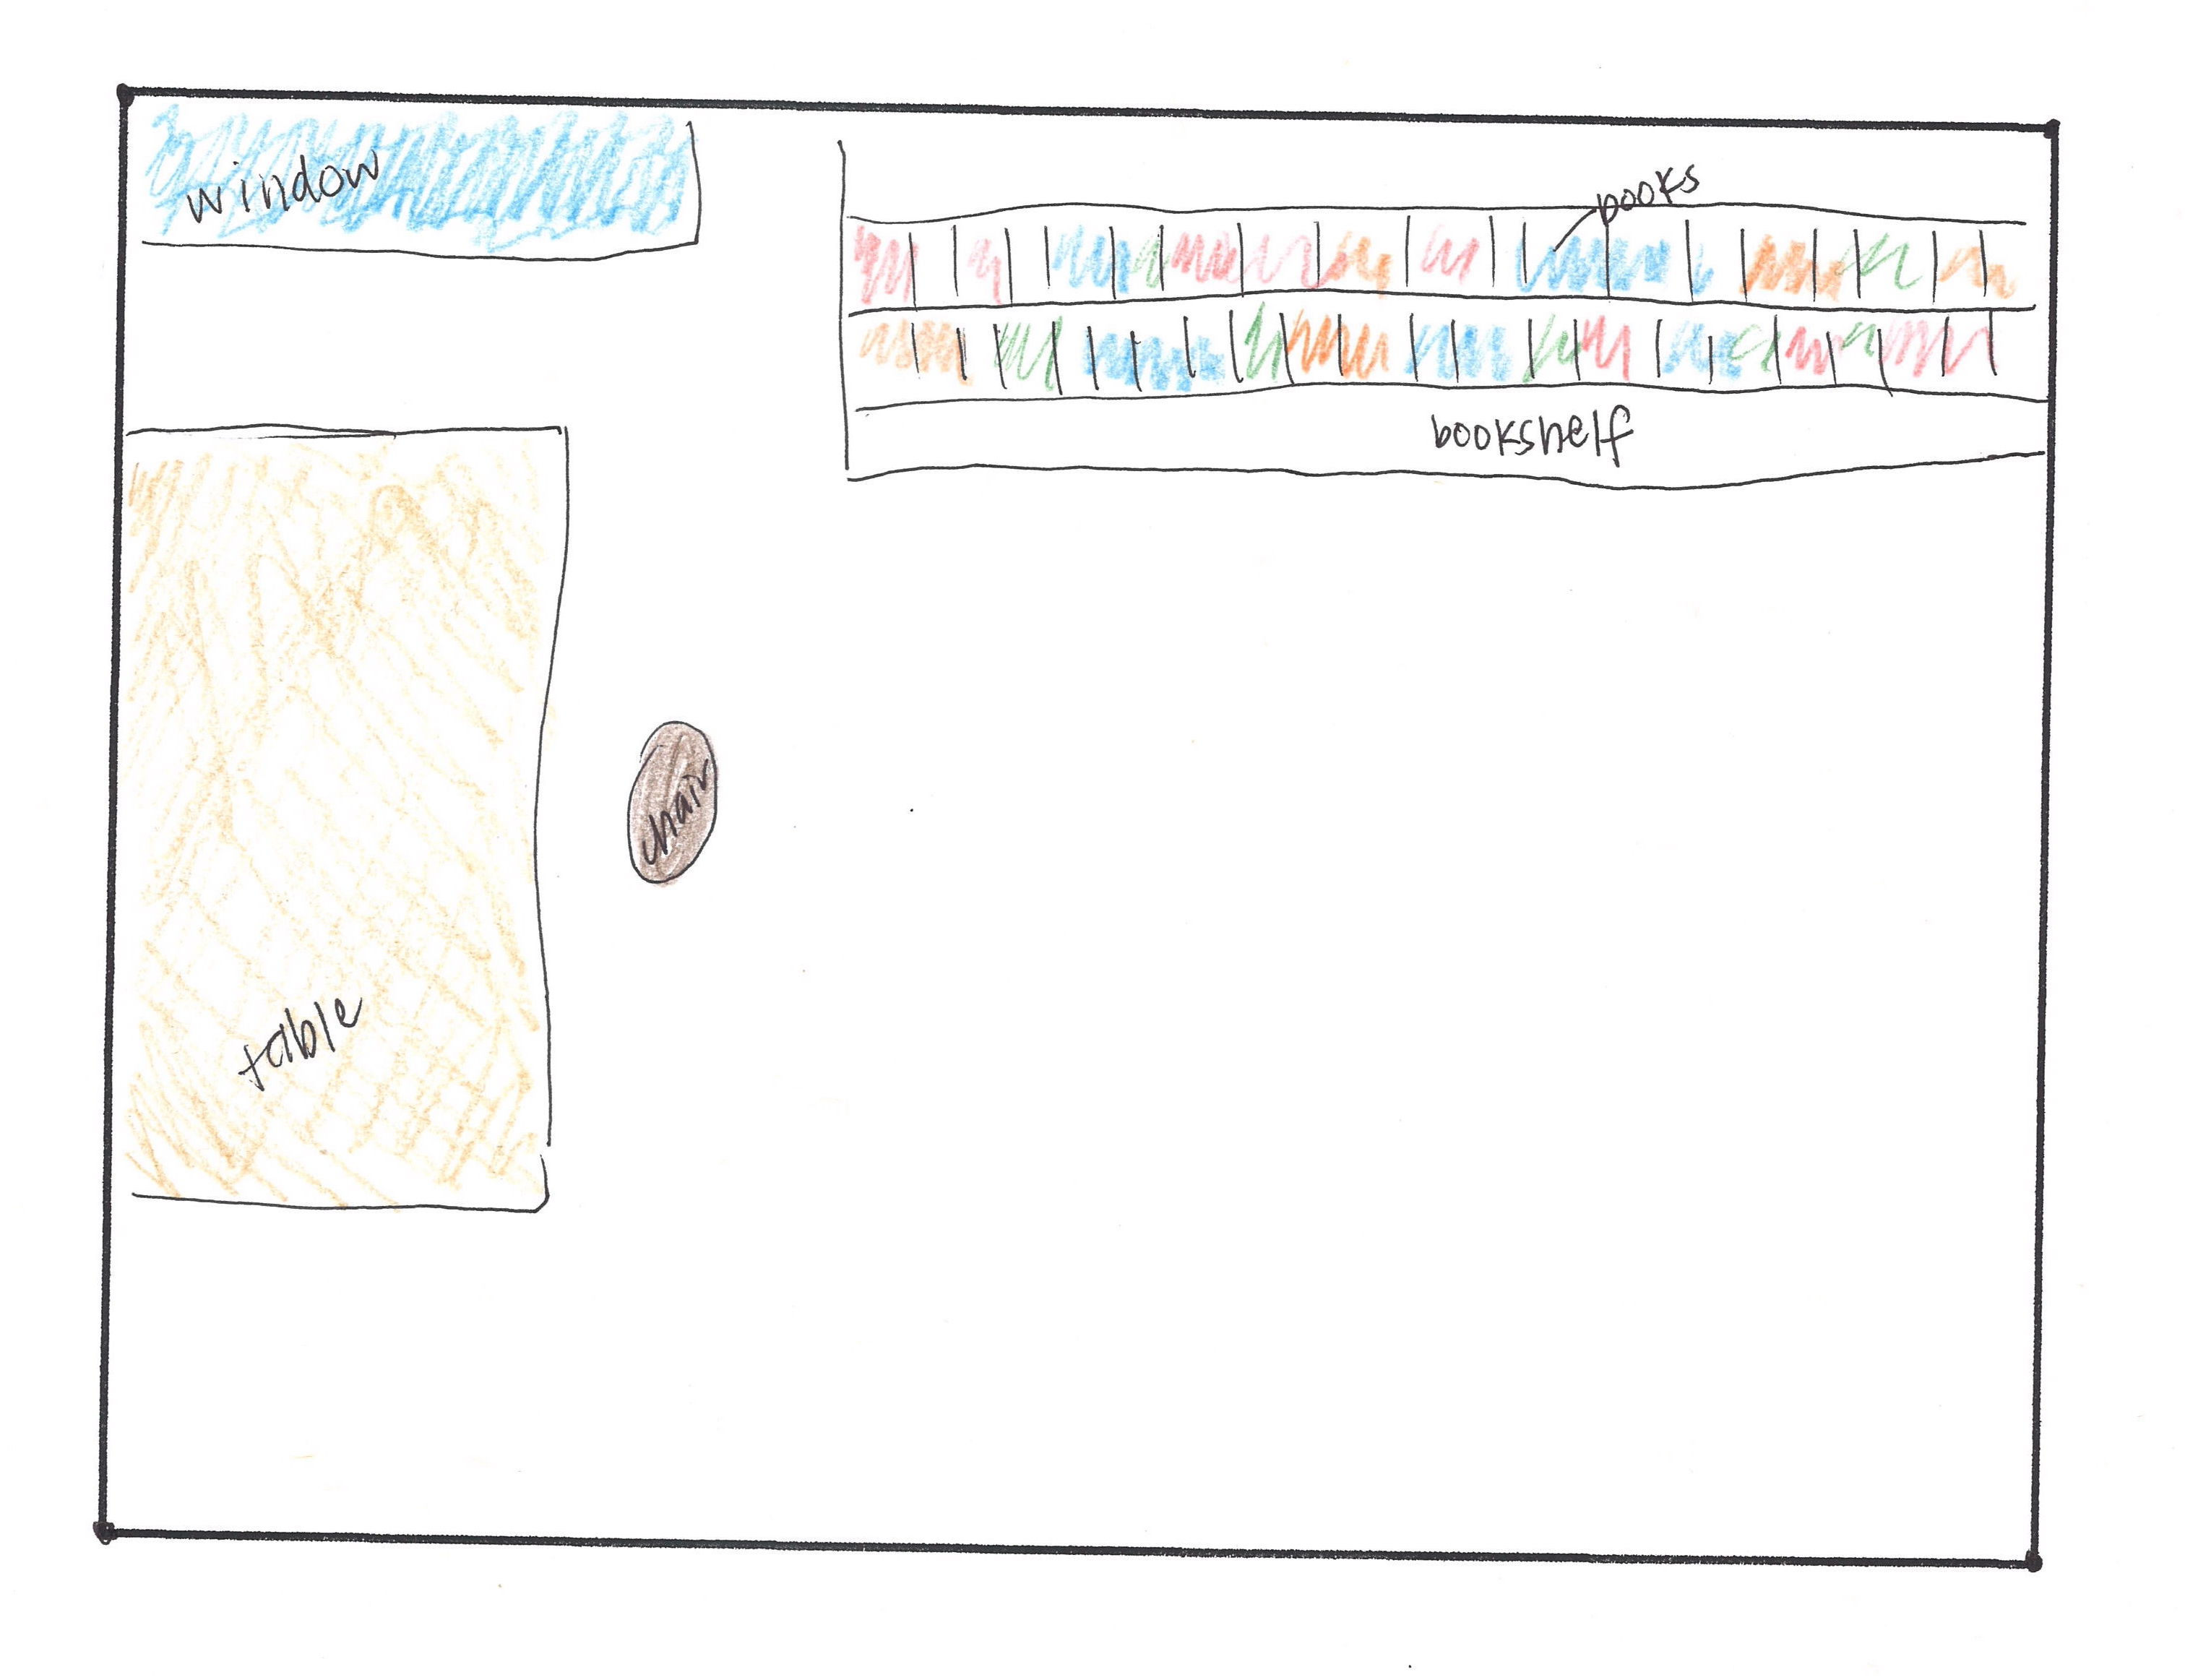 window
books
bookshelf
chair
table